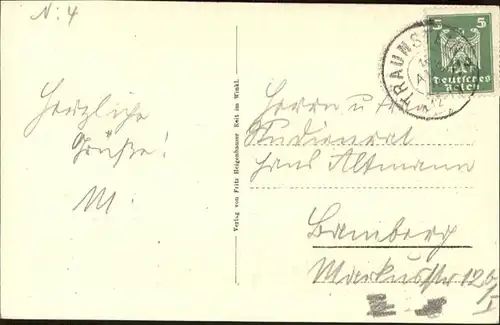 N: 4
Herzliche
Grüße!
M.
Verlag von Fritz Heigenhauser Reit im Winkl.
TRAUNSTEIN
5 5
Deutsches
Reich
Herrn u. Frau
Studienrat
Hans Altmann
Bamberg
Markusstr 12b/I